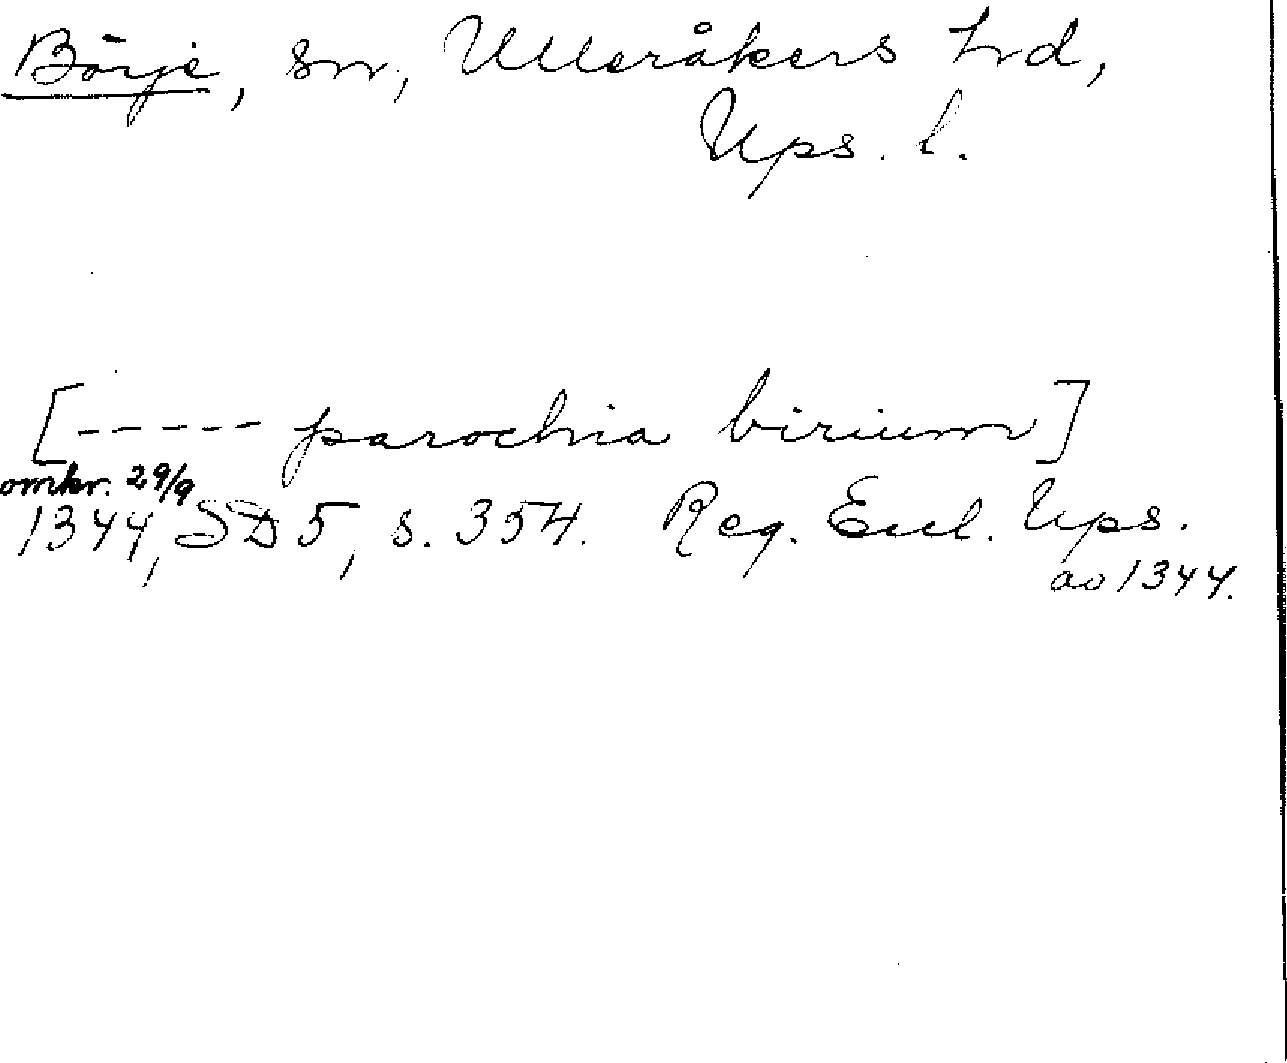 Börje, sn, Ulleråkers hd,
Ups. l.
[----- parochia birium]
omkr. 29/9
1344, SD 5, s. 354. Reg. Eccl. Ups.
ao 1344.